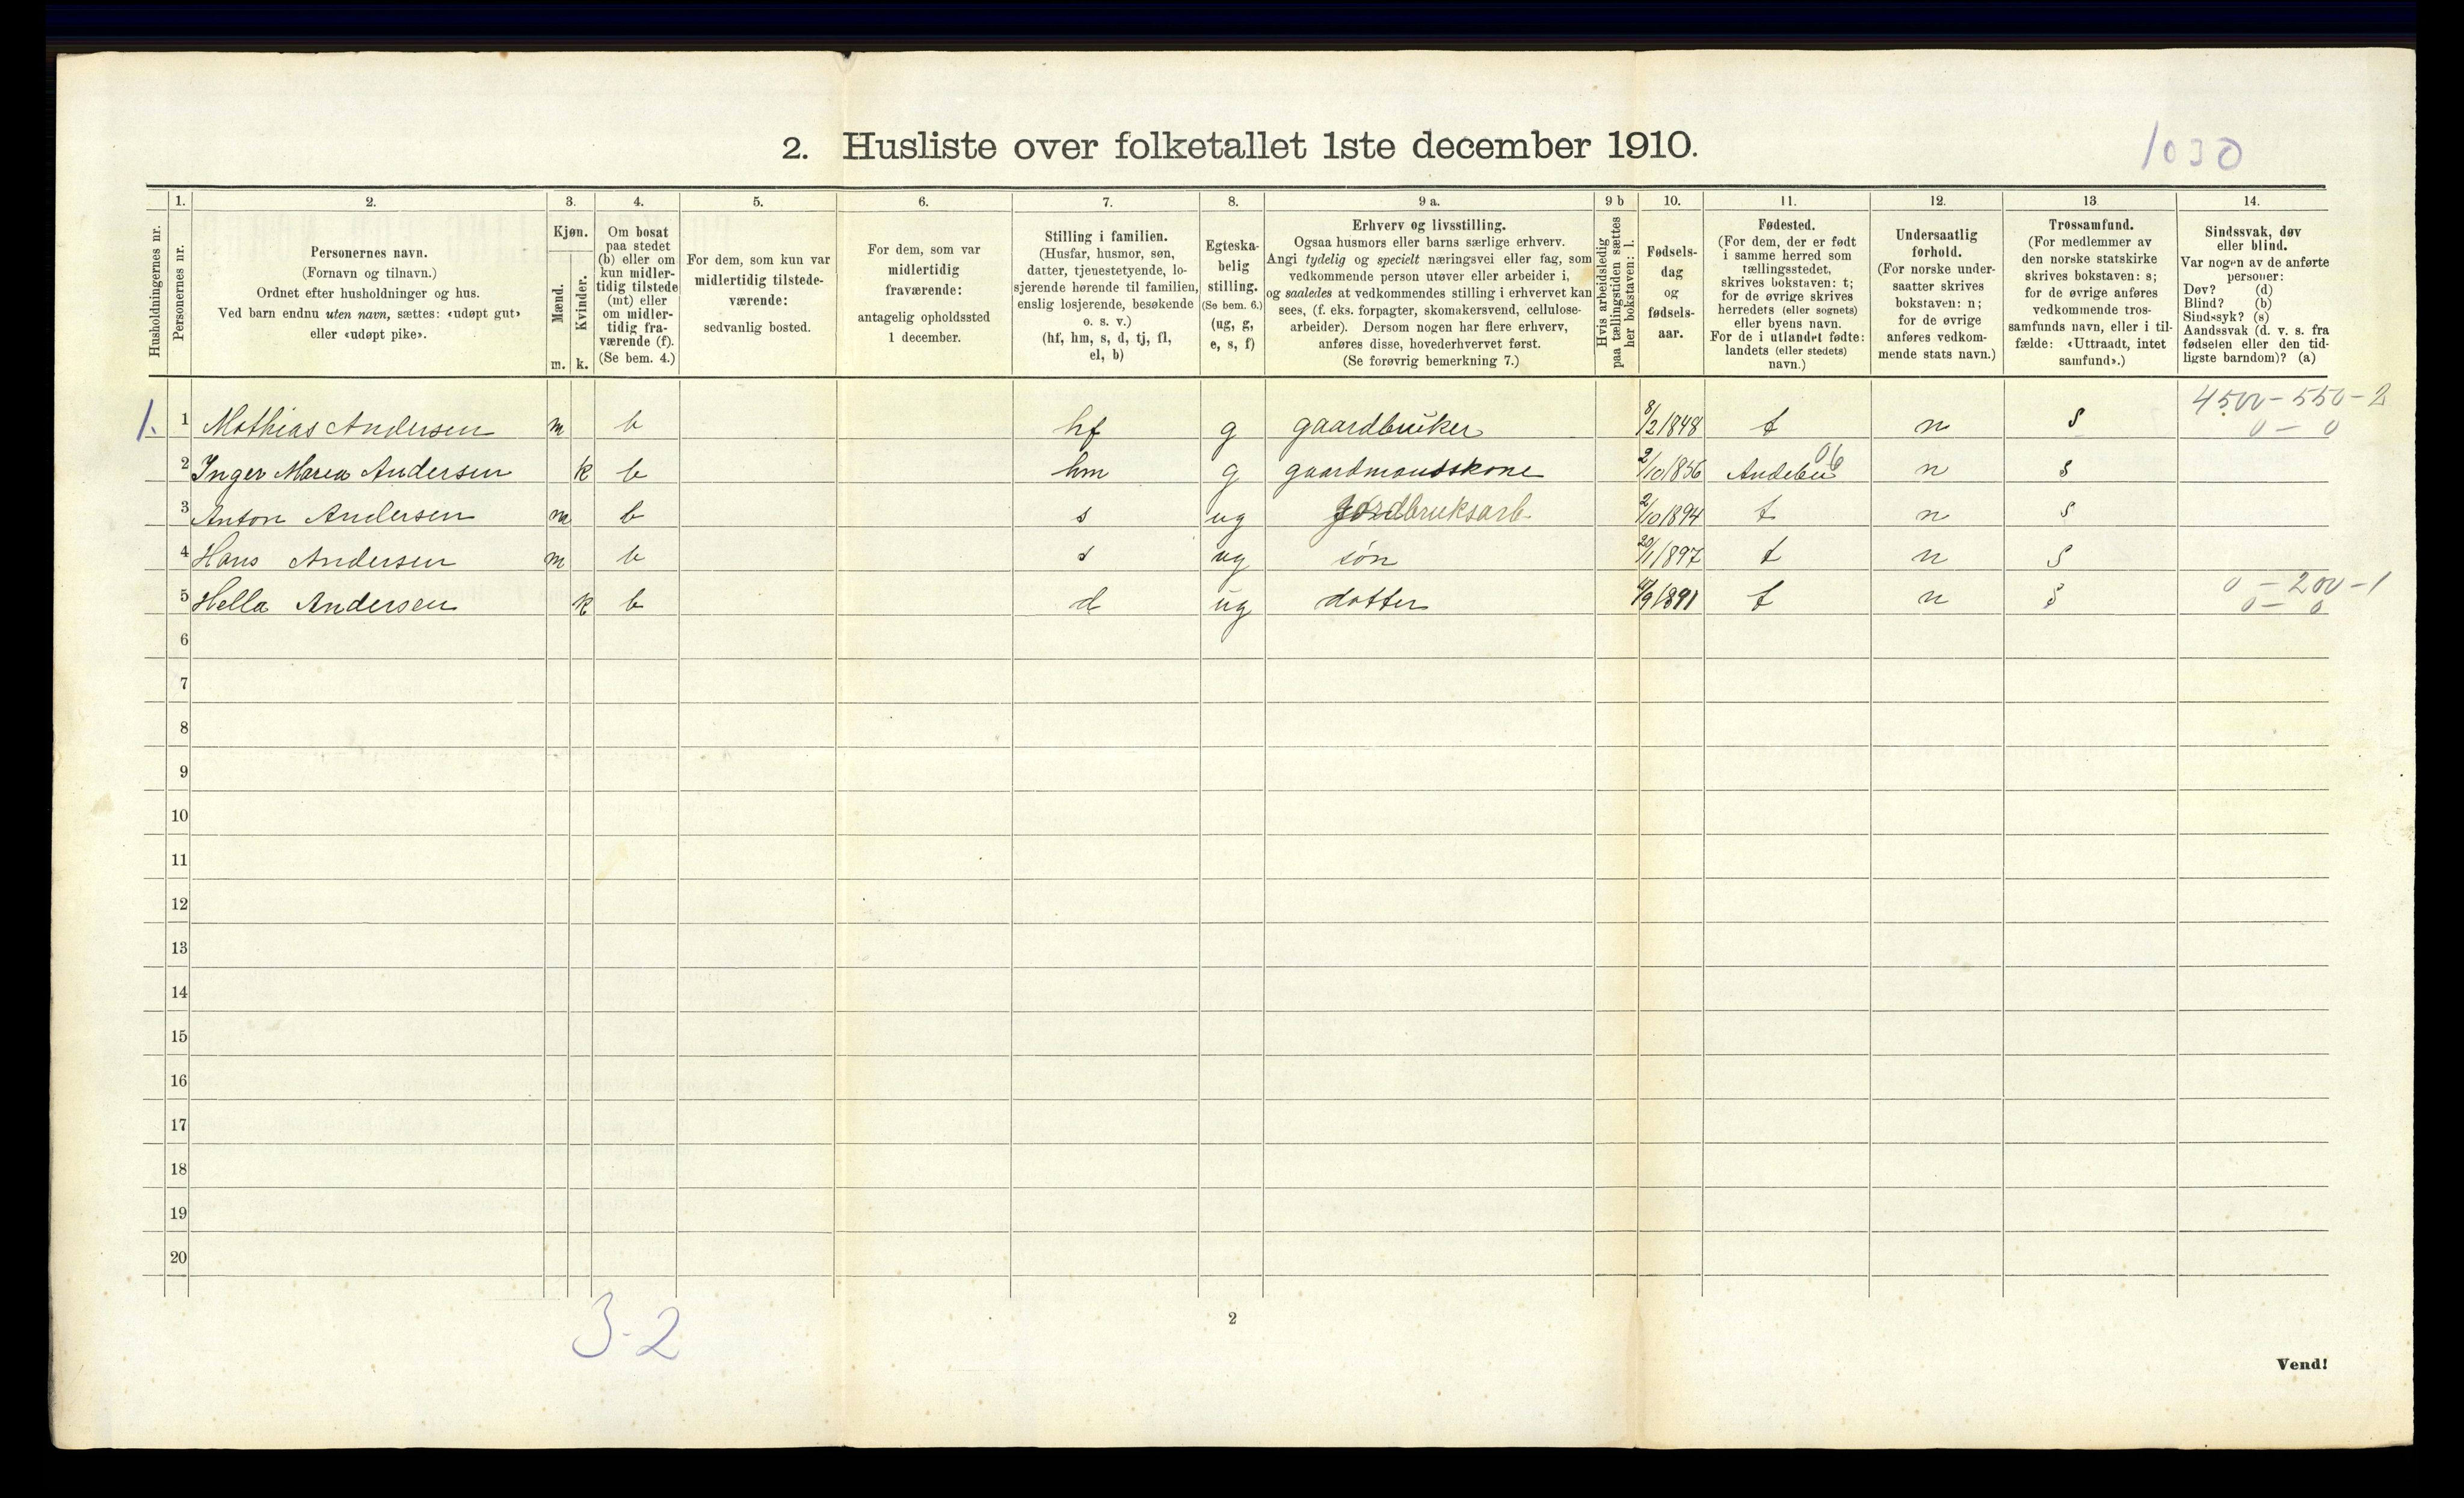 2. Husliste over folketallet 1ste december 1910.
1030
1. 2. 3. 4. 5. 6. 7. 8. 9 a. 9 b 10. 11. 12. 13 14.
Husholdningernes nr.
Personernes nr.
Personernes navn.
(Fornavn og tilnavn.)
Ordnet efter husholdninger og hus.
Ved barn endnu uten navn, sættes: «udøpt gut»
eller «udøpt pike».
Kjøn.
Mænd.
Kvinder.
m. k.
Om bosat
paa stedet
(b) eller om
kun midler-
tidig tilstede
(mt) eller
om midler-
tidig fra-
værende (f).
(Se bem. 4.)
For dem, som kun var
midlertidig tilstede-
værende:
sedvanlig bosted.
For dem, som var
midlertidig
fraværende:
antagelig opholdssted
1 december.
Stilling i familien.
(Husfar, husmor, søn,
datter, tjenestetyende, lo-
sjerende hørende til familien,
enslig losjerende, besøkende
o. s. v.)
(hf, hm, s, d, tj, fl,
el, b)
Egteska-
belig
stilling.
(Se bem. 6.)
(ug, g,
e, s, f)
Erhverv og livsstilling.
Ogsaa husmors eller barns særlige erhverv.
Angi tydelig og specielt næringsvei eller fag, som
vedkommende person utøver eller arbeider i,
og saaledes at vedkommendes stilling i erhvervet kan
sees, (f. eks. forpagter, skomakersvend, cellulose-
arbeider). Dersom nogen har flere erhverv,
anføres disse, hovederhvervet først.
(Se forøvrig bemerkning 7.)
Hvis arbeidsledig
paa tællingstiden sættes
her bokstaven: l.
Fødsels-
dag
og
fødsels-
aar.
Fødested.
(For dem, der er født
i samme herred som
tællingsstedet,
skrives bokstaven: t;
for de øvrige skrives
herredets (eller sognets)
eller byens navn.
For de i utlandet fødte:
landets (eller stedets)
navn.)
Undersaatlig
forhold.
(For norske under-
saatter skrives
bokstaven: n;
for de øvrige
anføres vedkom-
mende stats navn.)
Trossamfund.
(For medlemmer av
den norske statskirke
skrives bokstaven: s;
for de øvrige anføres
vedkommende tros-
samfunds navn, eller i til-
fælde: «Uttraadt, intet
samfund».)
Sindssvak, døv
eller blind.
Var nogen av de anførte
personer:
Døv? (d)
Blind? (b)
Sindssyk? (s)
Aandssvak (d. v. s. fra
fødselen eller den tid-
ligste barndom)? (a)
4500-550-2
1. 1 Mathias Andersen m b hf g gaardbruker 8/2 1848 t n s 0-0
2 Inger Maren Andersen k b hm g gaardmandskone 2/10 1856 Andebu 06 n s
3 Anton Andersen m b s ug Jordbruksarb 2/10 1894 t n s
4 Hans Andersen m b s ug søn 20/1 1897 t n s
0-200-1
5 Hella Andersen k b d ug datter /9 1891 t n s 0-0
6
7
8
9
10
11
12
13
14
15
16
17
18
19
20
3-2
2
Vend!